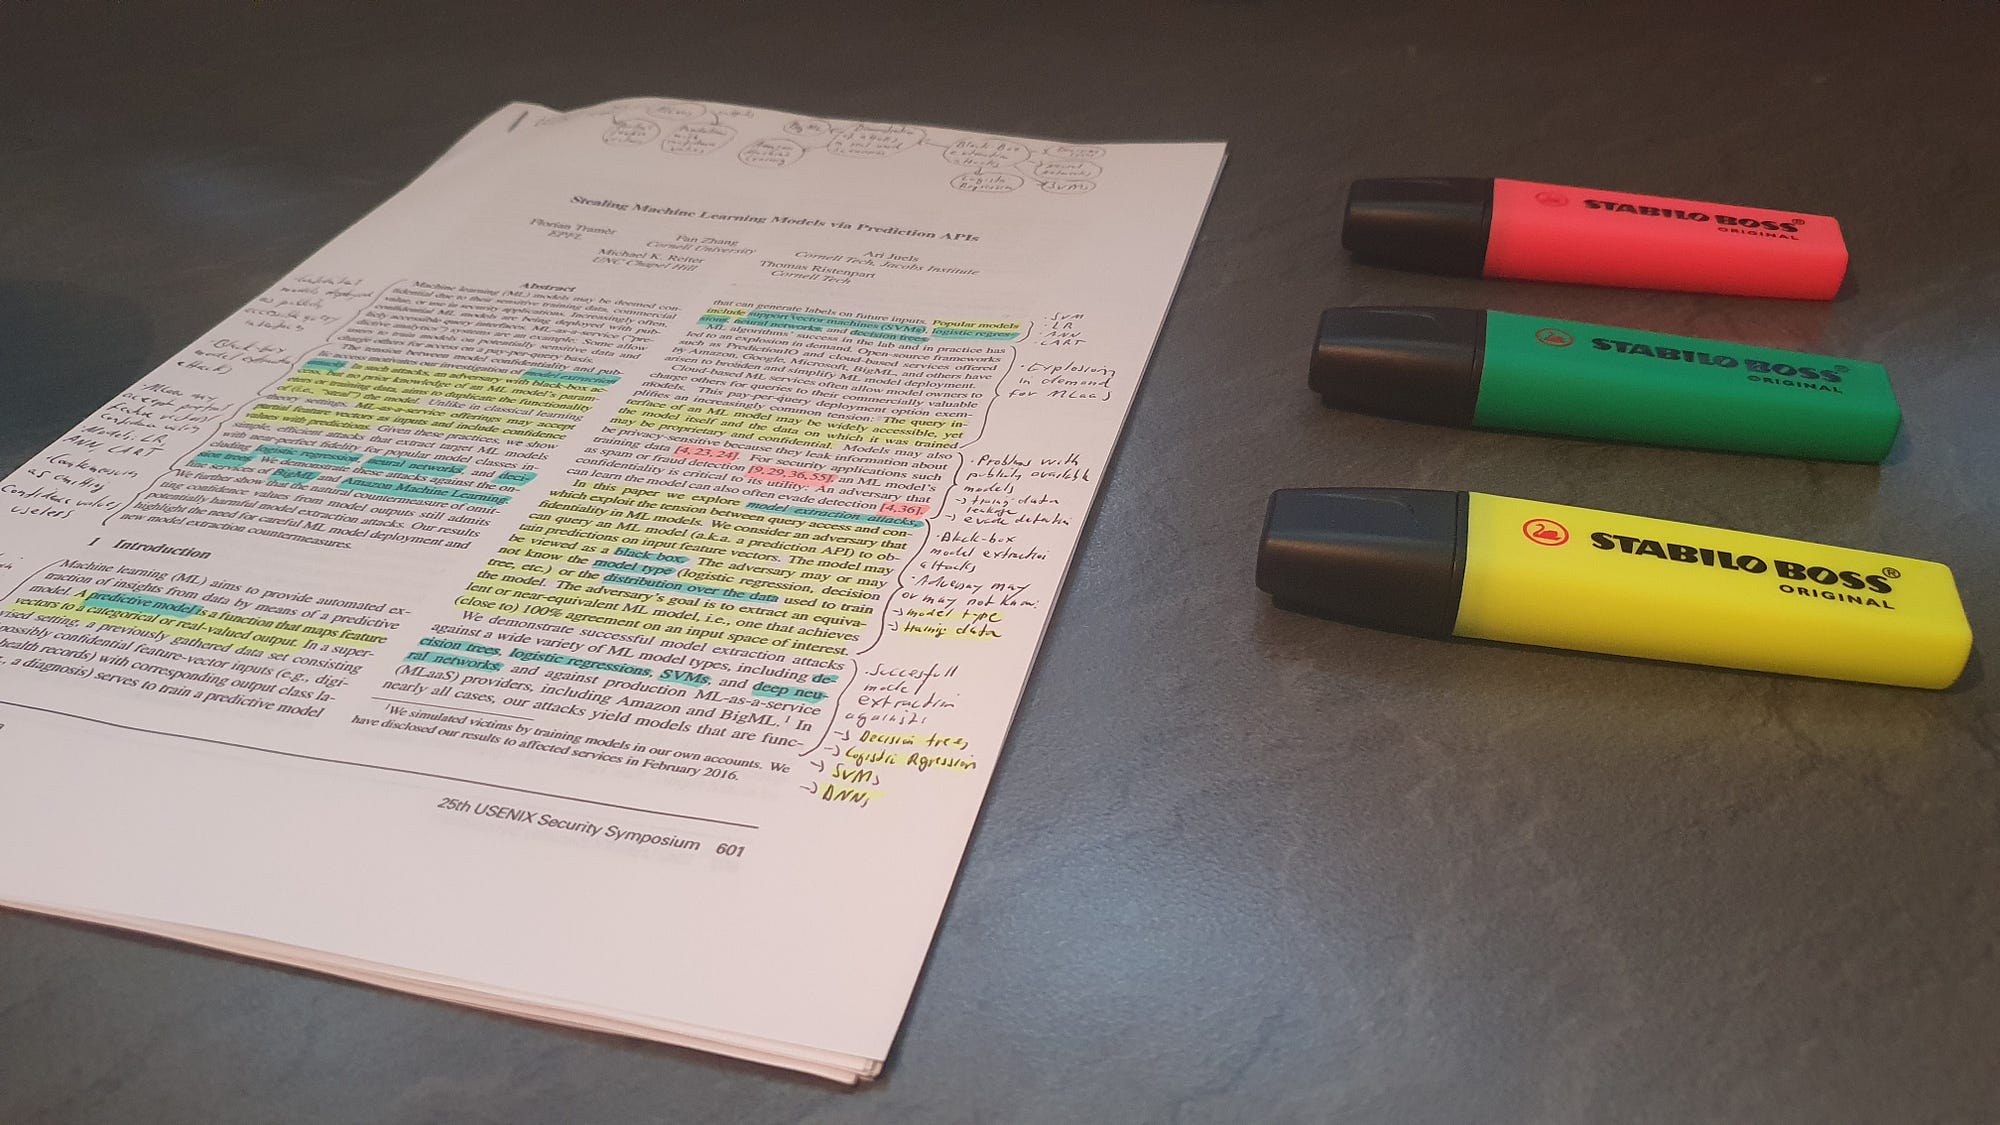 Black Box
extraction
attacks
SVMs
Stealing Machine Learning Models via Prediction APIs
Florian Tramèr
EPFL
Fan Zhang
Cornell University
Ari Juels
Cornell Tech, Jacobs Institute
Michael K. Reiter
UNC Chapel Hill
Thomas Ristenpart
Cornell Tech
Abstract
Machine learning (ML) models may be deemed con-
fidential due to their sensitive training data, commercial
value, or use in security applications. Increasingly often,
confidential ML models are being deployed with pub-
licly accessible query interfaces. ML-as-a-service ("pre-
dictive analytics") systems are an example: Some allow
users to train models on potentially sensitive data and
charge others for access on a pay-per-query basis.
The tension between model confidentiality and pub-
lic access motivates our investigation of model extraction
attacks. In such attacks, an adversary with black-box ac-
cess, but no prior knowledge of an ML model's param-
eters or training data, aims to duplicate the functionality
of (i.e., "steal") the model. Unlike in classical learning
theory settings, ML-as-a-service offerings may accept
partial feature vectors as inputs and include confidence
values with predictions. Given these practices, we show
simple, efficient attacks that extract target ML models
with near-perfect fidelity for popular model classes in-
cluding logistic regression, neural networks, and deci-
sion trees. We demonstrate these attacks against the on-
line services of BigML and Amazon Machine Learning.
We further show that the natural countermeasure of omit-
ting confidence values from model outputs still admits
potentially harmful model extraction attacks. Our results
highlight the need for careful ML model deployment and
new model extraction countermeasures.
1 Introduction
Machine learning (ML) aims to provide automated ex-
traction of insights from data by means of a predictive
model. A predictive model is a function that maps feature
vectors to a categorical or real-valued output. In a super-
vised setting, a previously gathered data set consisting
possibly confidential feature-vector inputs (e.g., digi-
health records) with corresponding output class la-
., a diagnosis) serves to train a predictive model
that can generate labels on future inputs. Popular models
include support vector machines (SVMs), logistic regres-
sions, neural networks, and decision trees.
ML algorithms' success in the lab and in practice has
led to an explosion in demand. Open-source frameworks
such as PredictionIO and cloud-based services offered
by Amazon, Google, Microsoft, BigML, and others have
arisen to broaden and simplify ML model deployment.
Cloud-based ML services often allow model owners to
charge others for queries to their commercially valuable
models. This pay-per-query deployment option exem-
plifies an increasingly common tension: The query in-
terface of an ML model may be widely accessible, yet
the model itself and the data on which it was trained
may be proprietary and confidential. Models may also
be privacy-sensitive because they leak information about
training data [4,23,24]. For security applications such
as spam or fraud detection [9,29,36,55], an ML model's
confidentiality is critical to its utility: An adversary that
can learn the model can also often evade detection [4,36].
In this paper we explore model extraction attacks,
which exploit the tension between query access and con-
fidentiality in ML models. We consider an adversary that
can query an ML model (a.k.a. a prediction API) to ob-
tain predictions on input feature vectors. The model may
be viewed as a black box. The adversary may or may
not know the model type (logistic regression, decision
tree, etc.) or the distribution over the data used to train
the model. The adversary's goal is to extract an equiva-
lent or near-equivalent ML model, i.e., one that achieves
(close to) 100% agreement on an input space of interest.
We demonstrate successful model extraction attacks
against a wide variety of ML model types, including de-
cision trees, logistic regressions, SVMs, and deep neu-
ral networks, and against production ML-as-a-service
(MLaaS) providers, including Amazon and BigML.¹ In
nearly all cases, our attacks yield models that are func-
¹We simulated victims by training models in our own accounts. We
have disclosed our results to affected services in February 2016.
25th USENIX Security Symposium 601
· SVM
· LR
· ANN
· CART
· Explosion
in demand
for MLaaS
· Problems with
publicly available
models
→ training data
leakage
→ evade detection
· Black-box
model extraction
attacks
· Adversary may
or may not know:
→ model type
→ training data
· Succesfull
model
extraction
against:
→ Decision trees
→ Logistic Regression
→ SVMs
→ DNNs
STABILO BOSS®
ORIGINAL
STABILO BOSS®
ORIGINAL
STABILO BOSS®
ORIGINAL